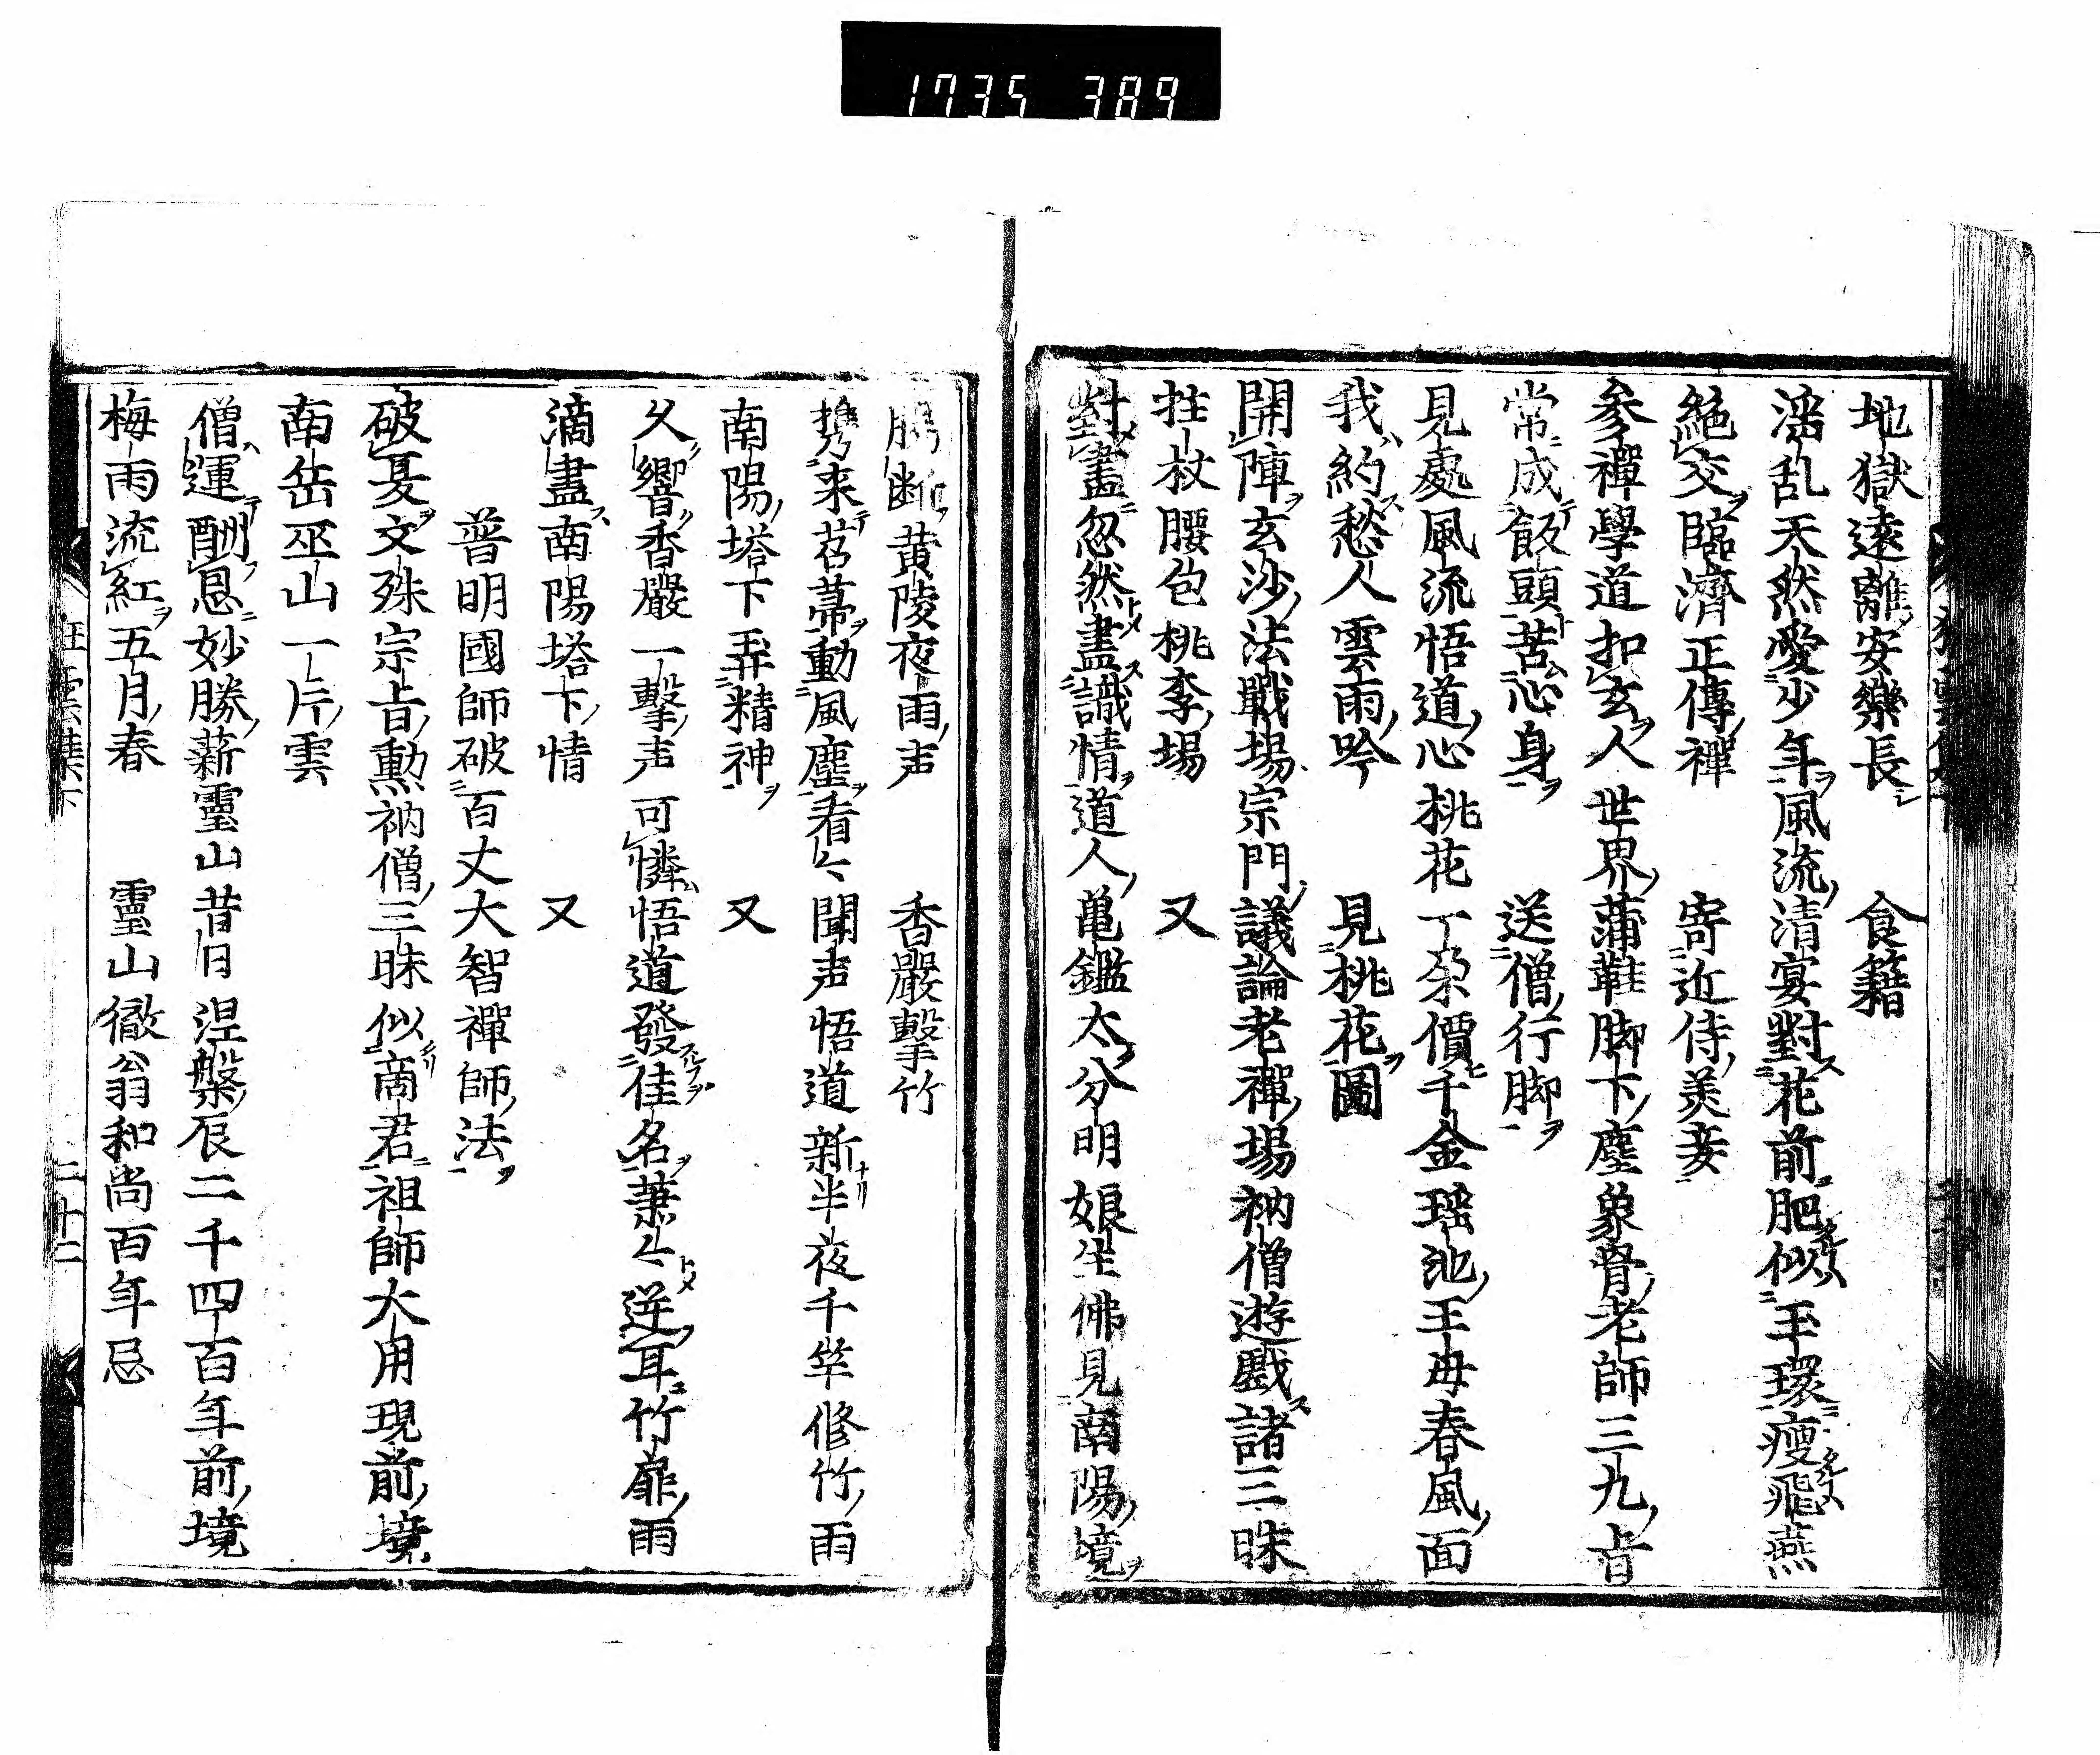 1735 389
地獄遠離安樂長 食籍
淫乱天然愛少年風流清宴對花前肥似玉環瘦飛燕
絶交臨濟正傳禪 寄近侍美妾
參禪學道扣玄人世界蒲鞋脚下塵象骨老師三九旨
常成飯頭苦心身 送僧行脚
見處風流悟道心桃花一朶價千金瑶池王母春風面
我約愁人雲雨吟 見桃花圖
開陣玄沙法戰場宗門議論老禪場衲僧遊戲諸三昧
拄杖腰包桃李場 又
對畫忽然盡識情道人亀鑑太分明娘生佛見南陽境
腸断黄陵夜雨声 香嚴擊竹
携来苕菷動風塵看〻聞声悟道新半夜千竿修竹雨
南陽塔下弄精神 又
久響香嚴一擊声可憐悟道發佳名叢〻逆耳竹扉雨
滴盡南陽塔下情 又
普明國師破百丈大智禪師法
破戛文殊宗旨勲衲僧三昧似商君祖師大用現前境
南岳巫山一片雲
僧運酬恩妙勝薪靈山昔日涅槃辰二千四百年前境
梅雨流紅五月春 靈山徹翁和尚百年忌
狂雲集下 二十二